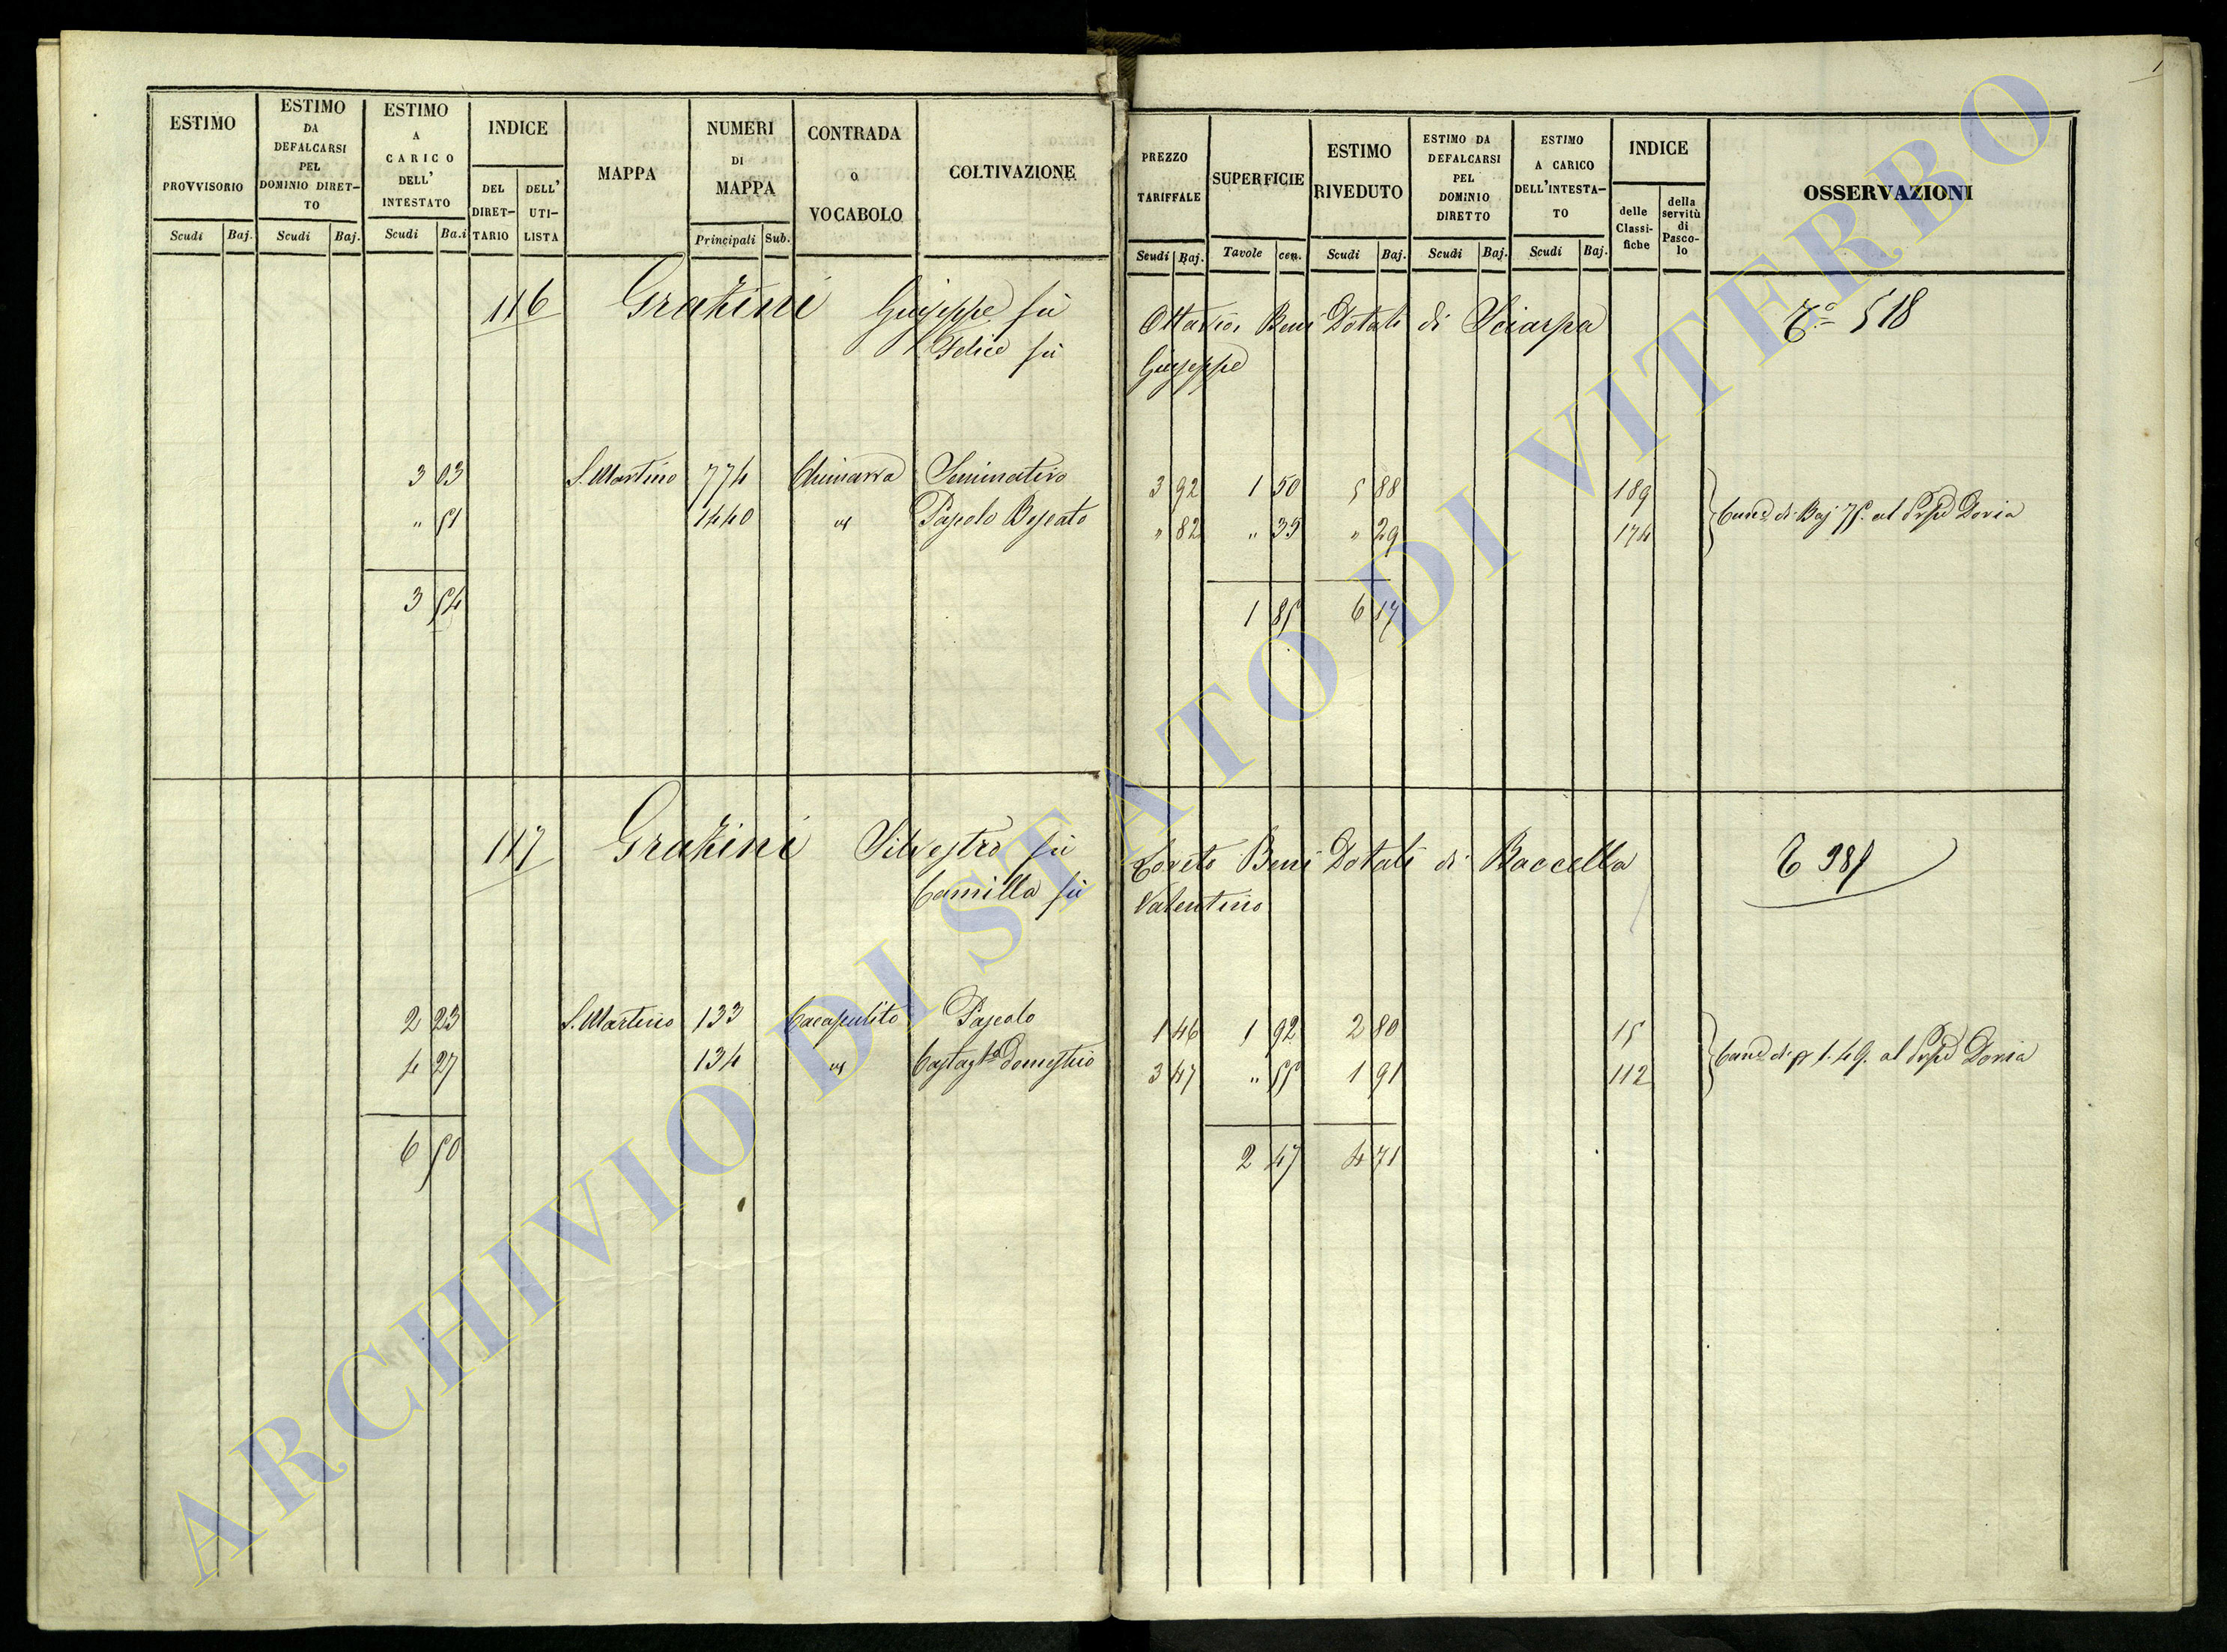 ESTIMO PROVVISORIO | ESTIMO DA DEFALCARSI PEL DOMINIO DIRET-TO | ESTIMO A CARICO DELL' INTESTATO | INDICE | MAPPA | NUMERI DI MAPPA | CONTRADA O VOCABOLO | COLTIVAZIONE | PREZZO TARIFFALE | SUPERFICIE | ESTIMO RIVEDUTO | ESTIMO DA DEFALCARSI PEL DOMINIO DIRETTO | ESTIMO A CARICO DELL'INTESTA-TO | INDICE | OSSERVAZIONI
Scudi | Baj. | Scudi | Baj. | Scudi | Ba.i | DEL DIRET-TARIO | DELL' UTI-LISTA | Principali | Sub. | Scudi | Baj. | Tavole | cen. | Scudi | Baj. | Scudi | Baj. | Scudi | Baj. | delle Classi-fiche | della servitù di Pasco-lo
116 Grazini Giuseppe fù Ottavio, Beni Dotali di Sciarpa 518
Felice fù Giuseppe
3 03 S. Martino 774 Chimarra Seminativo 3 92 1 50 5 88 189
" 51 1440 " Pascolo Boscato " 82 " 35 " 29 174
Canᵉ di Baj 75. al Doria
3 54 1 85 6 17
117 Grazini Silvestro fù Loreto Beni Dotali di Baccella 985
Camilla fù Valentino
2 23 S. Martino 133 Cacapulito Pascolo 1 46 1 92 2 80 15
4 27 134 " Castagᵗᵒ Domestico 3 47 " 55 1 91 112
Canᵉ di 1.49. al Doria
6 50 2 47 4 71
ARCHIVIO DI STATO DI VITERBO